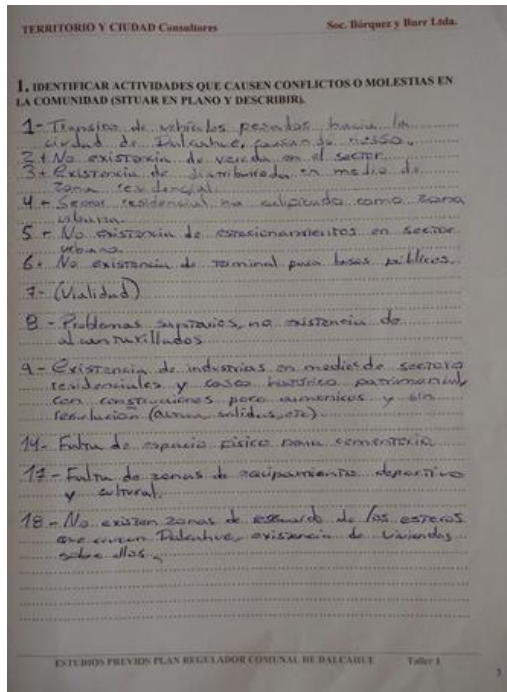 TERRITORIO Y CIUDAD Consultores Soc. Bórquez y Burr Ltda.
1. IDENTIFICAR ACTIVIDADES QUE CAUSEN CONFLICTOS O MOLESTIAS EN
LA COMUNIDAD (SITUAR EN PLANO Y DESCRIBIR).
1- Transito de vehiculos pesados hacia la
ciudad de Dalcahue, causando riesgo.
2+ No existencia de vereda en el sector
3+ Existencia de distribuidora en medio de
zona residencial
4+ Sector residencial no calificado como zona
urbana.
5+ No existencia de estacionamientos en sector
urbano.
6+ No existencia de terminal para buses públicos.
7- (Vialidad)
8- Problemas sanitarios, no existencia de
alcantarillados
9- Existencia de industrias en medio de sectores
residenciales y casco histórico patrimonial,
con construcciones poco armonicos y sin
regulación (altura, salidas, etc).
14- Falta de espacio fisico para cementerio
17- Falta de zonas de equipamiento deportivo
y cultural.
18- No existen zonas de resguardo de los esteros
que cruzan Dalcahue, existencia de viviendas
sobre ellos.
ESTUDIOS PREVIOS PLAN REGULADOR COMUNAL DE DALCAHUE Taller 1
3